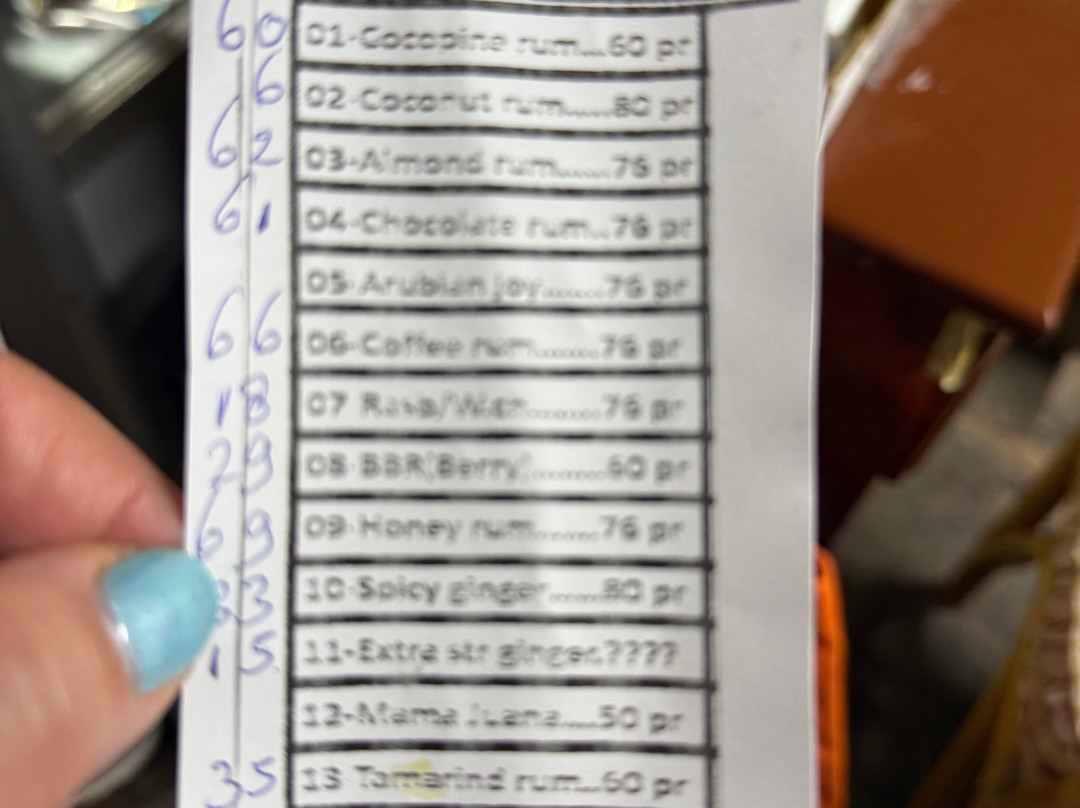 60 01-Cocopine rum...60 pr
6 02-Coconut rum......80 pr
62 03-Almond rum.......76 pr
61 04-Chocolate rum..76 pr
05-Arubian joy.......76 pr
66 06-Coffee rum........76 pr
18 07 76 pr
29 08-BBR(Berry).........60 pr
69 09-Honey rum.........76 pr
33 10-Spicy ginger......80 pr
15 11-Extra str ginger.????
12-Mama Juana.....50 pr
35 13-Tamarind rum..60 pr